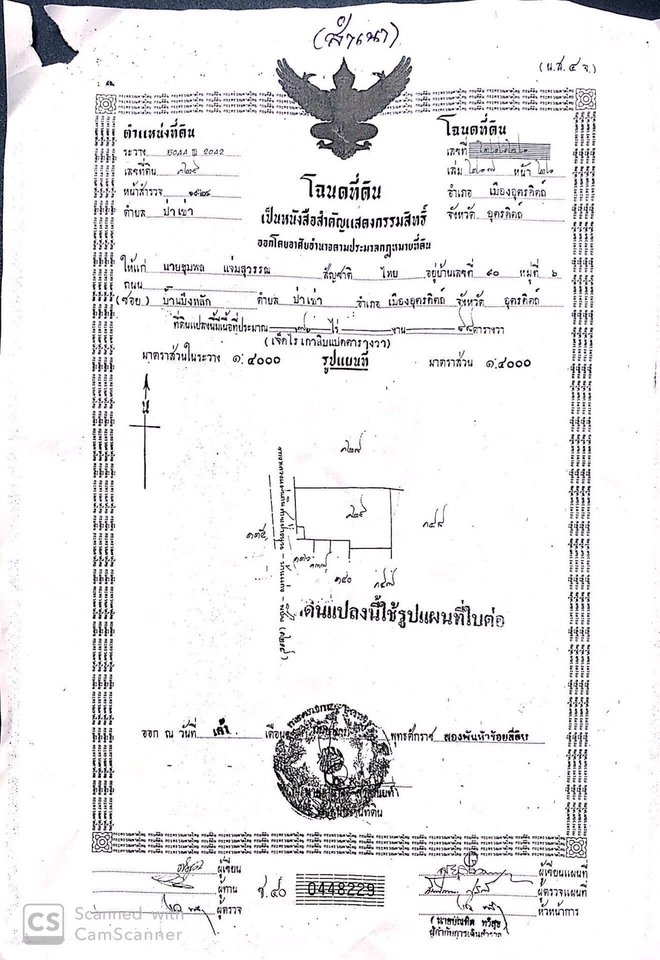 (สำเนา)
(น.ส.๔ จ.)
ตำแหน่งที่ดิน
ระวาง 5044 2042
เลขที่ดิน ๑๒๙
หน้าสำรวจ
ตำบล ป่าเซ่า
โฉนดที่ดิน
เลขที่
เล่ม หน้า
อำเภอ เมืองอุตรดิตถ์
จังหวัด อุตรดิตถ์
โฉนดที่ดิน
เป็นหนังสือสำคัญแสดงกรรมสิทธิ์
ออกโดยอาศัยอำนาจตามประมวลกฎหมายที่ดิน
ให้แก่ นายชุมพล แจ่มสุวรรณ สัญชาติ ไทย อยู่บ้านเลขที่ ๙๐ หมู่ที่ ๖
ถนน
(ซอย) บ้านบึงหลัก ตำบล ป่าเซ่า อำเภอ เมืองอุตรดิตถ์ จังหวัด อุตรดิตถ์
ที่ดินแปลงนี้มีเนื้อที่ประมาณ ๗ ไร่ งาน ๙๘ ตารางวา
(เจ็ดไร่ เก้าสิบแปดตารางวา)
มาตราส่วนในระวาง ๑:๔๐๐๐ รูปแผนที่ มาตราส่วน ๑:๔๐๐๐
น
๑๒๗
๑๒๙
๑๔๙
๑๓๕
๑๓๖
๑๓๗
๑๔๐
๑๔๗
ดินแปลงนี้ใช้รูปแผนที่ใบต่อ
ออก ณ วันที่ เก้า เดือน พุทธศักราช สองพันห้าร้อยสี่สิบ
เจ้าพนักงานที่ดิน
ผู้เขียน
ผู้ทาน
ผู้ตรวจ
ช.๔๐ 0448229
ผู้เขียนแผนที่
ผู้ตรวจแผนที่
หัวหน้าการ
(นายบัณฑิต ทวีสุข)
ผู้กำกับการเดินสำรวจ
CS Scanned with
CamScanner